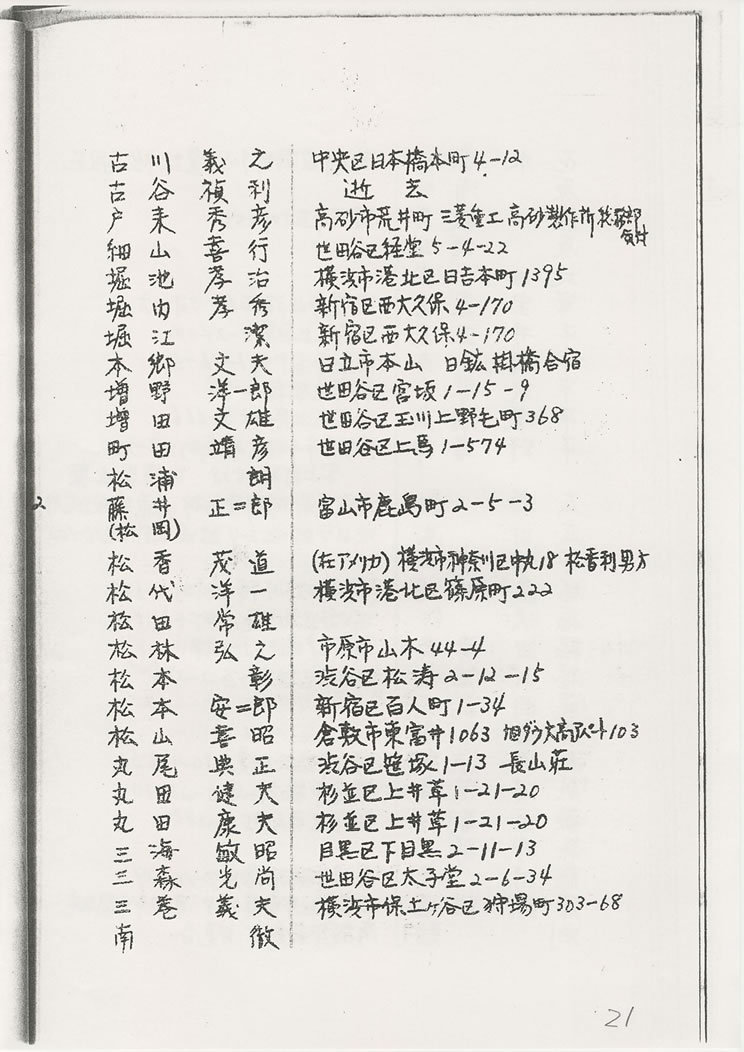 古川義之 中央区日本橋本町4-12
古谷禎利 逝去
戸来秀彦 高砂市荒井町 三菱重工高砂製作所
細山喜行 世田谷区経堂5-4-22
堀池孝治 横浜市港北区日吉本町1395
堀内孝秀 新宿区西大久保4-170
堀江潔 新宿区西大久保4-170
本郷文夫 日立市本山 日鉱掛橋合宿
増野洋一郎 世田谷区宮坂1-15-9
増田文雄 世田谷区玉川上野毛町368
町田靖彦 世田谷区上馬1-574
松浦朗
2 藤井正二郎 富山市鹿島町2-5-3
(松岡)
松香茂道 (在アメリカ) 横浜市神奈川区中丸18 松香利男方
松代洋一 横浜市港北区篠原町222
松田常雄
松林弘之 市原市山木44-4
松本彰 渋谷区松涛2-12-15
松本安二郎 新宿区百人町1-34
松山喜昭 倉敷市東富井1063 103
丸尾典正 渋谷区笹塚1-13 長山荘
丸田健夫 杉並区上井草1-21-20
丸田康夫 杉並区上井草1-21-20
三海敏昭 目黒区下目黒2-11-13
三森光尚 世田谷区太子堂2-6-34
三巻義夫 横浜市保土ヶ谷区狩場町303-68
南徹
21